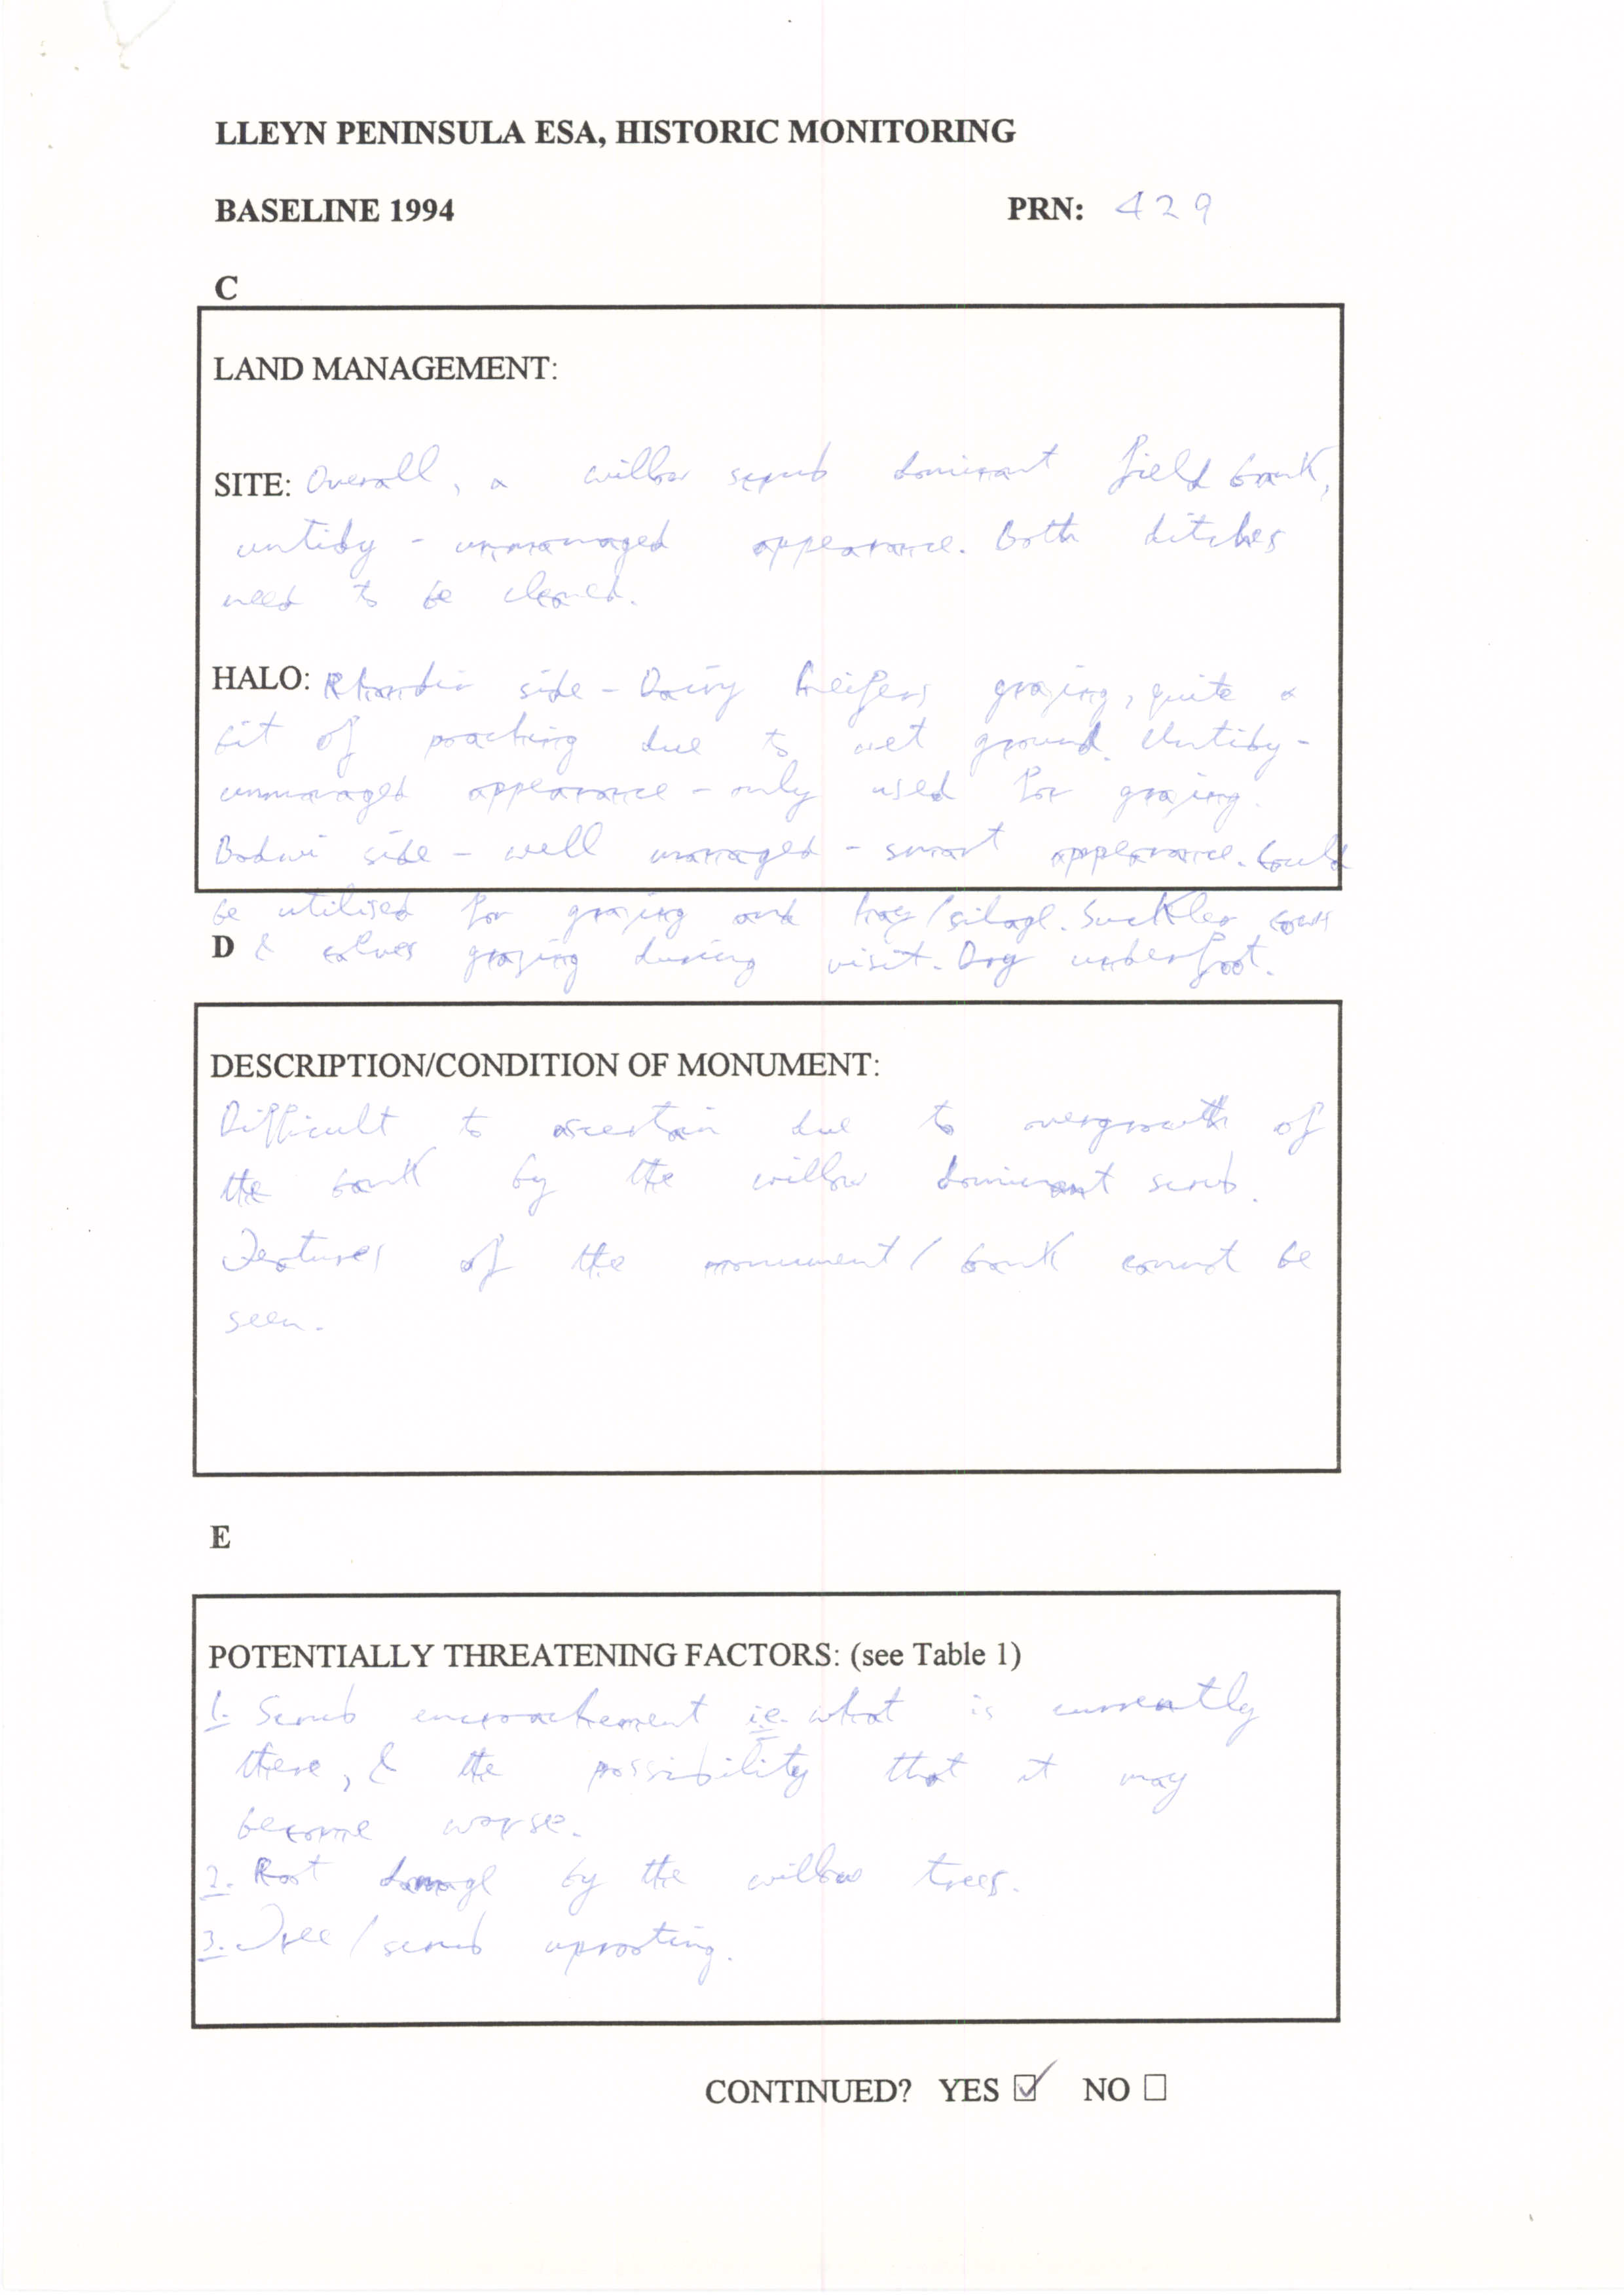 LLEYN PENINSULA ESA, HISTORIC MONITORING
BASELINE 1994 PRN: 429
C
LAND MANAGEMENT:
SITE: Overall, a willow scrub dominant field bank,
untidy - unmanaged appearance. Both ditches
need to be cleaned.
HALO: side - Dairy heifers grazing, quite a
bit of poaching due to wet ground. Untidy -
unmanaged appearance - only used for grazing.
Bodwi side - well managed - smart appearance. Could
be utilised for grazing and hay/silage. Suckler cows
D & calves grazing during visit. Dry underfoot.
DESCRIPTION/CONDITION OF MONUMENT:
Difficult to ascertain due to overgrowth of
the bank by the willow dominant scrub.
Features of the monument/bank cannot be
seen.
E
POTENTIALLY THREATENING FACTORS: (see Table 1)
1. Scrub encroachement i.e. what is currently
there, & the possibility that it may
become worse.
2. Root damage by the willow trees.
3. Tree/scrub uprooting.
CONTINUED? YES ☑ NO ☐